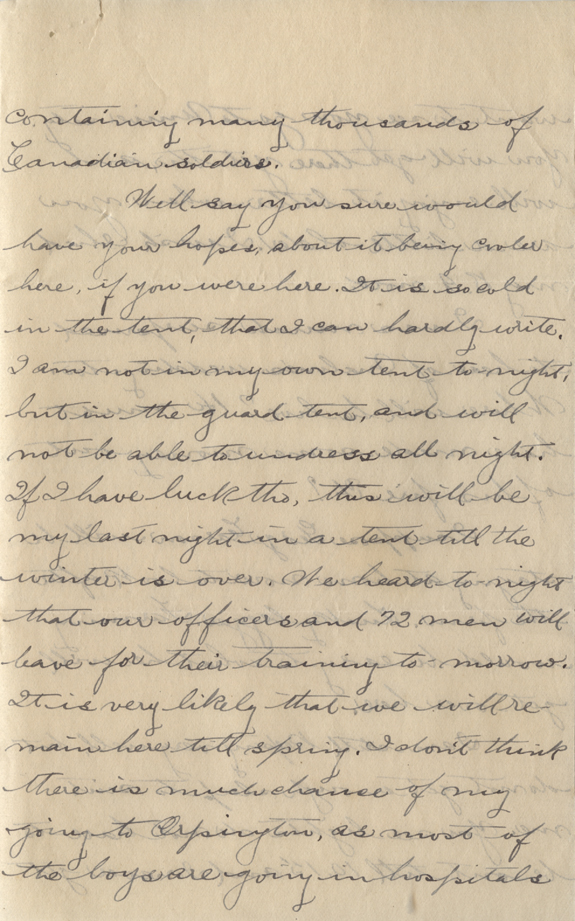 containing many thousands of
Canadian soldiers.
Well say you sure would
have your hopes, about it being cooler
here, if you were here. It is so cold
in the tent, that I can hardly write.
I am not in my own tent to-night,
but in the guard tent, and will
not be able to undress all night.
If I have luck tho, this will be
my last night in a tent till the
winter is over. We heard to-night
that our officers and 72 men will
leave for their training to-morrow.
It is very likely that we will re-
main here till spring. I don't think
there is much chance of my
going to Orpington, as most of
the boys are going in hospitals